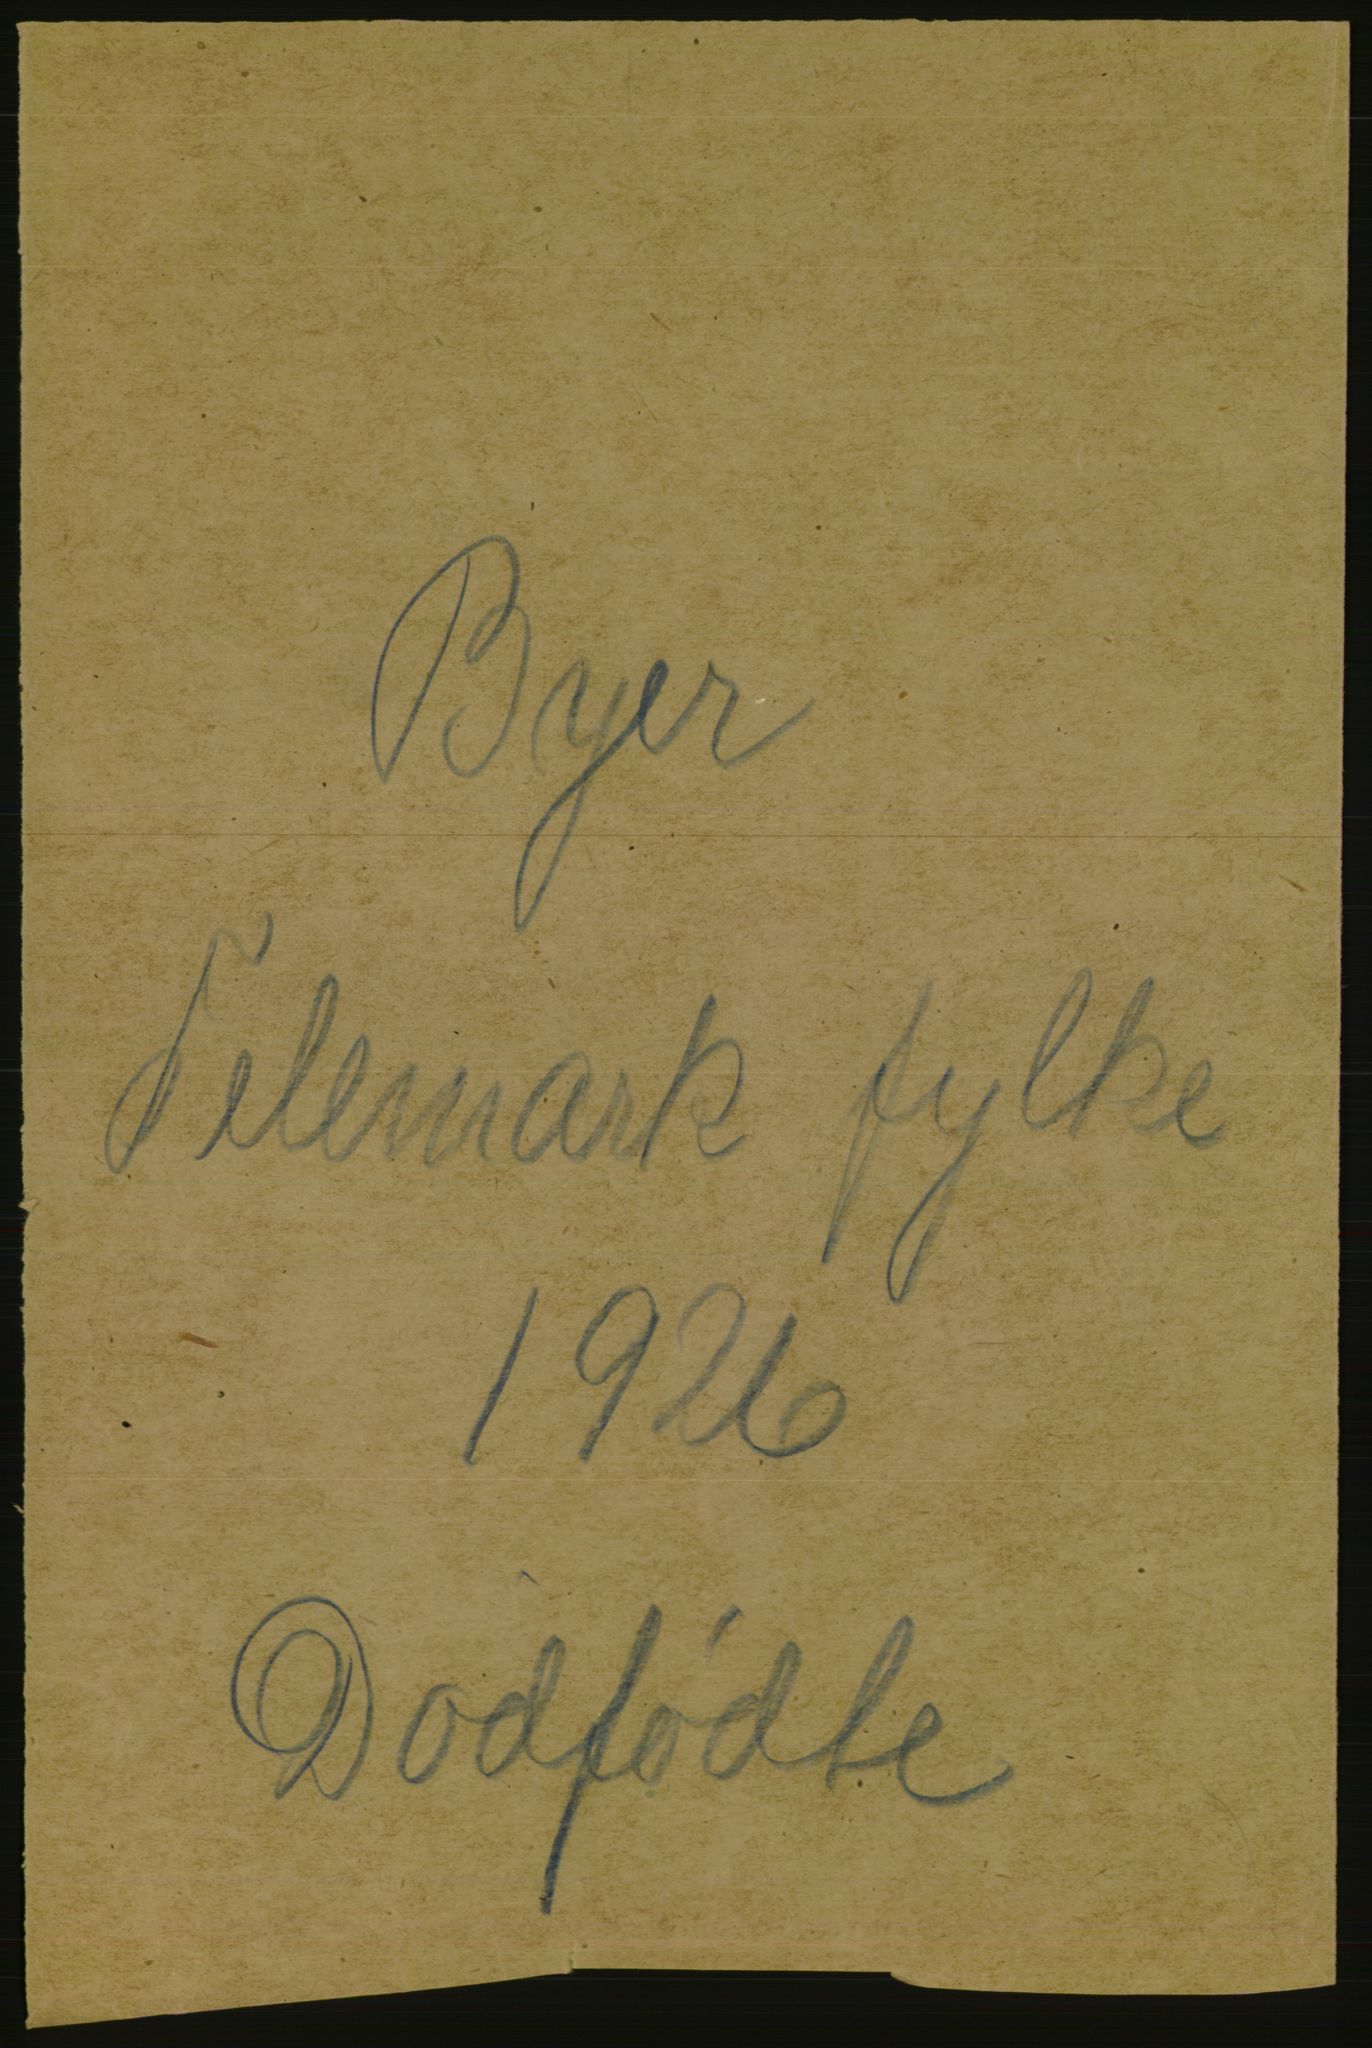 Byer
Telemark fylke
1926
Dødfødte